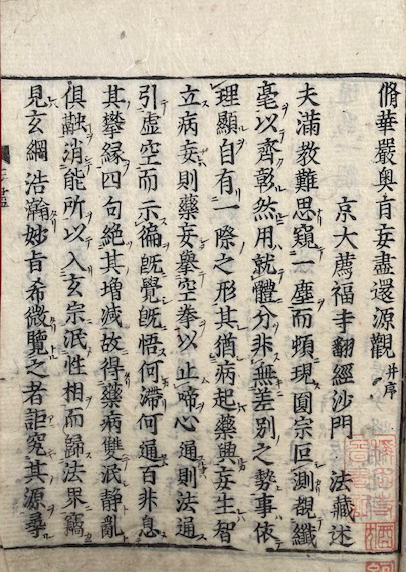 脩華嚴奧㫖妄盡還源觀 并序
京大薦福寺翻經沙門 法藏述
夫滿教難思窺一塵而頓現圓宗叵測覩纖
毫以齊彰然用就體分非無差別之勢事依
理顯自有一際之形其猶病起藥興妄生智
立病妄則藥妄舉空拳以止啼心通則法通
引虛空而示徧旣覺旣悟何滯何通百非息
其攀緣四句絶其增減故得藥病雙泯静亂
俱融消能所以入玄宗泯性相而歸法界竊
見玄綱浩瀚妙㫖希微覽之者詎究其源尋